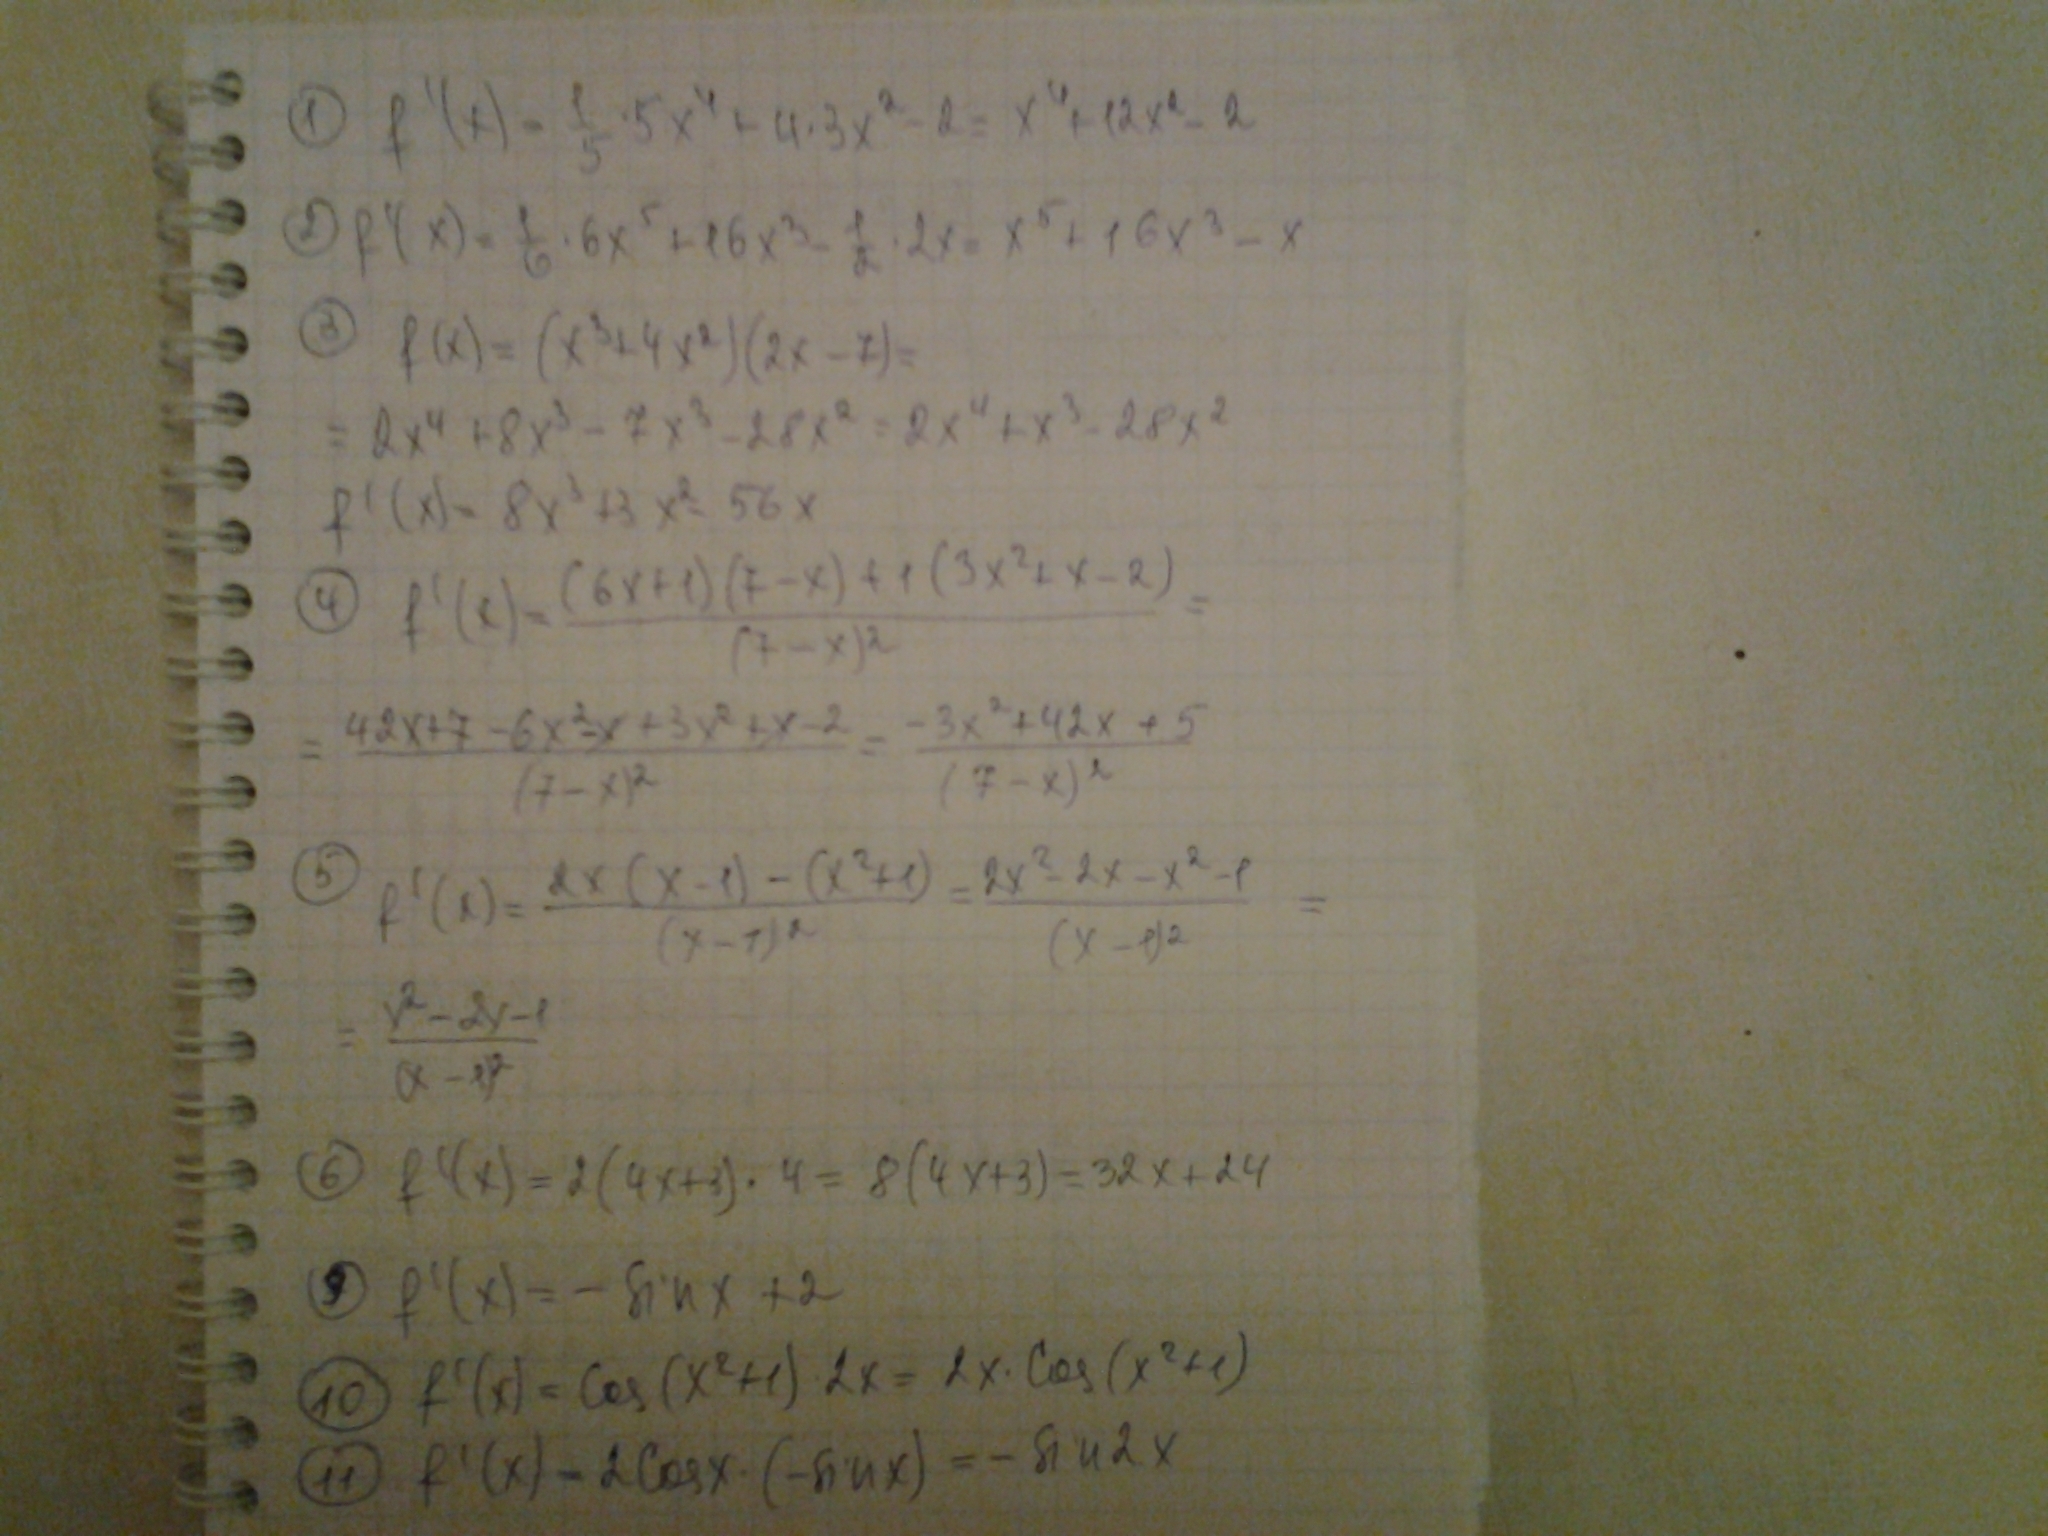 ① f'(x) = 1/5 · 5x⁴ + 4·3x² - 2 = x⁴ + 12x² - 2
② f'(x) = 1/6 · 6x⁵ + 16x³ - 1/2 · 2x = x⁵ + 16x³ - x
③ f(x) = (x³+4x²)(2x-7) =
= 2x⁴ + 8x³ - 7x³ - 28x² = 2x⁴ + x³ - 28x²
f'(x) = 8x³ + 3x² - 56x
④ f'(x) = ((6x+1)(7-x) + 1(3x²+x-2))/(7-x)² =
= (42x+7-6x²-x+3x²+x-2)/(7-x)² = (-3x²+42x+5)/(7-x)²
⑤ f'(x) = (2x(x-1) - (x²+1))/(x-1)² = (2x²-2x-x²-1)/(x-1)² =
= (x²-2x-1)/(x-1)²
⑥ f'(x) = 2(4x+3)·4 = 8(4x+3) = 32x+24
⑨ f'(x) = - sin x + 2
⑩ f'(x) = Cos(x²+1)·2x = 2x·Cos(x²+1)
⑪ f'(x) = 2Cosx·(-sinx) = - sin2x